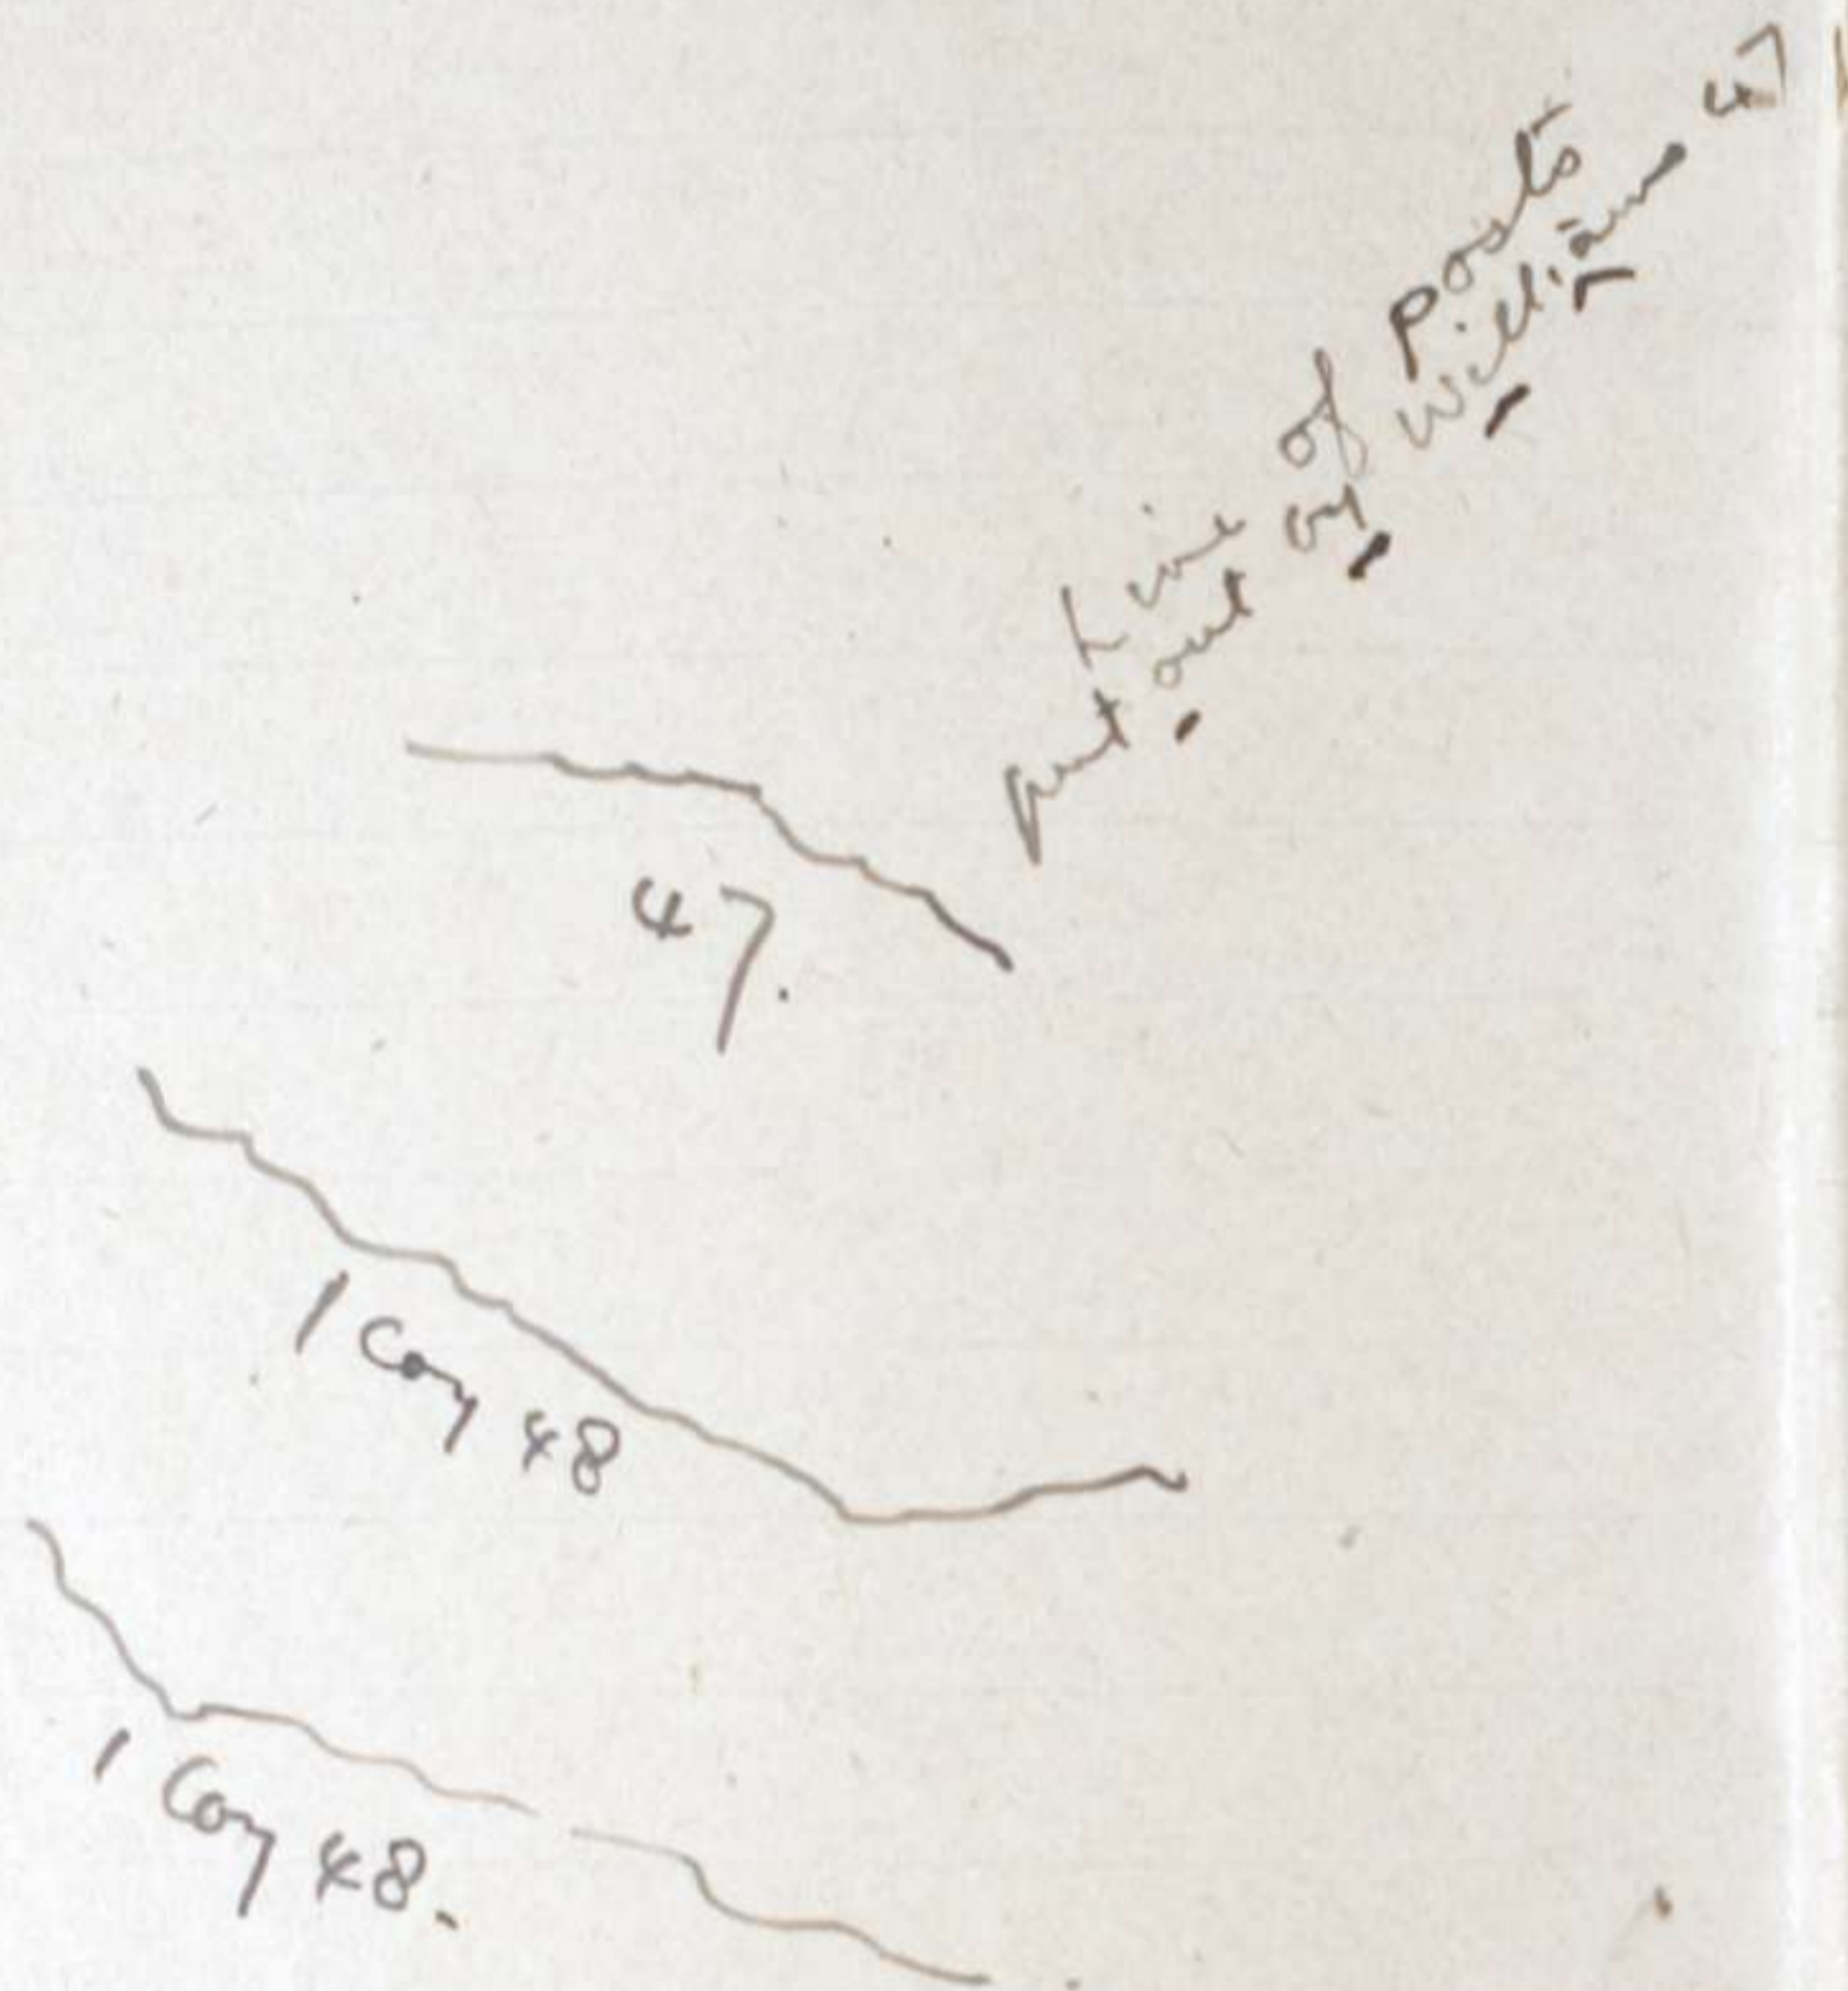 Line of posts
put out by Williams 47
47.
1 Coy 48
1 Coy 48.